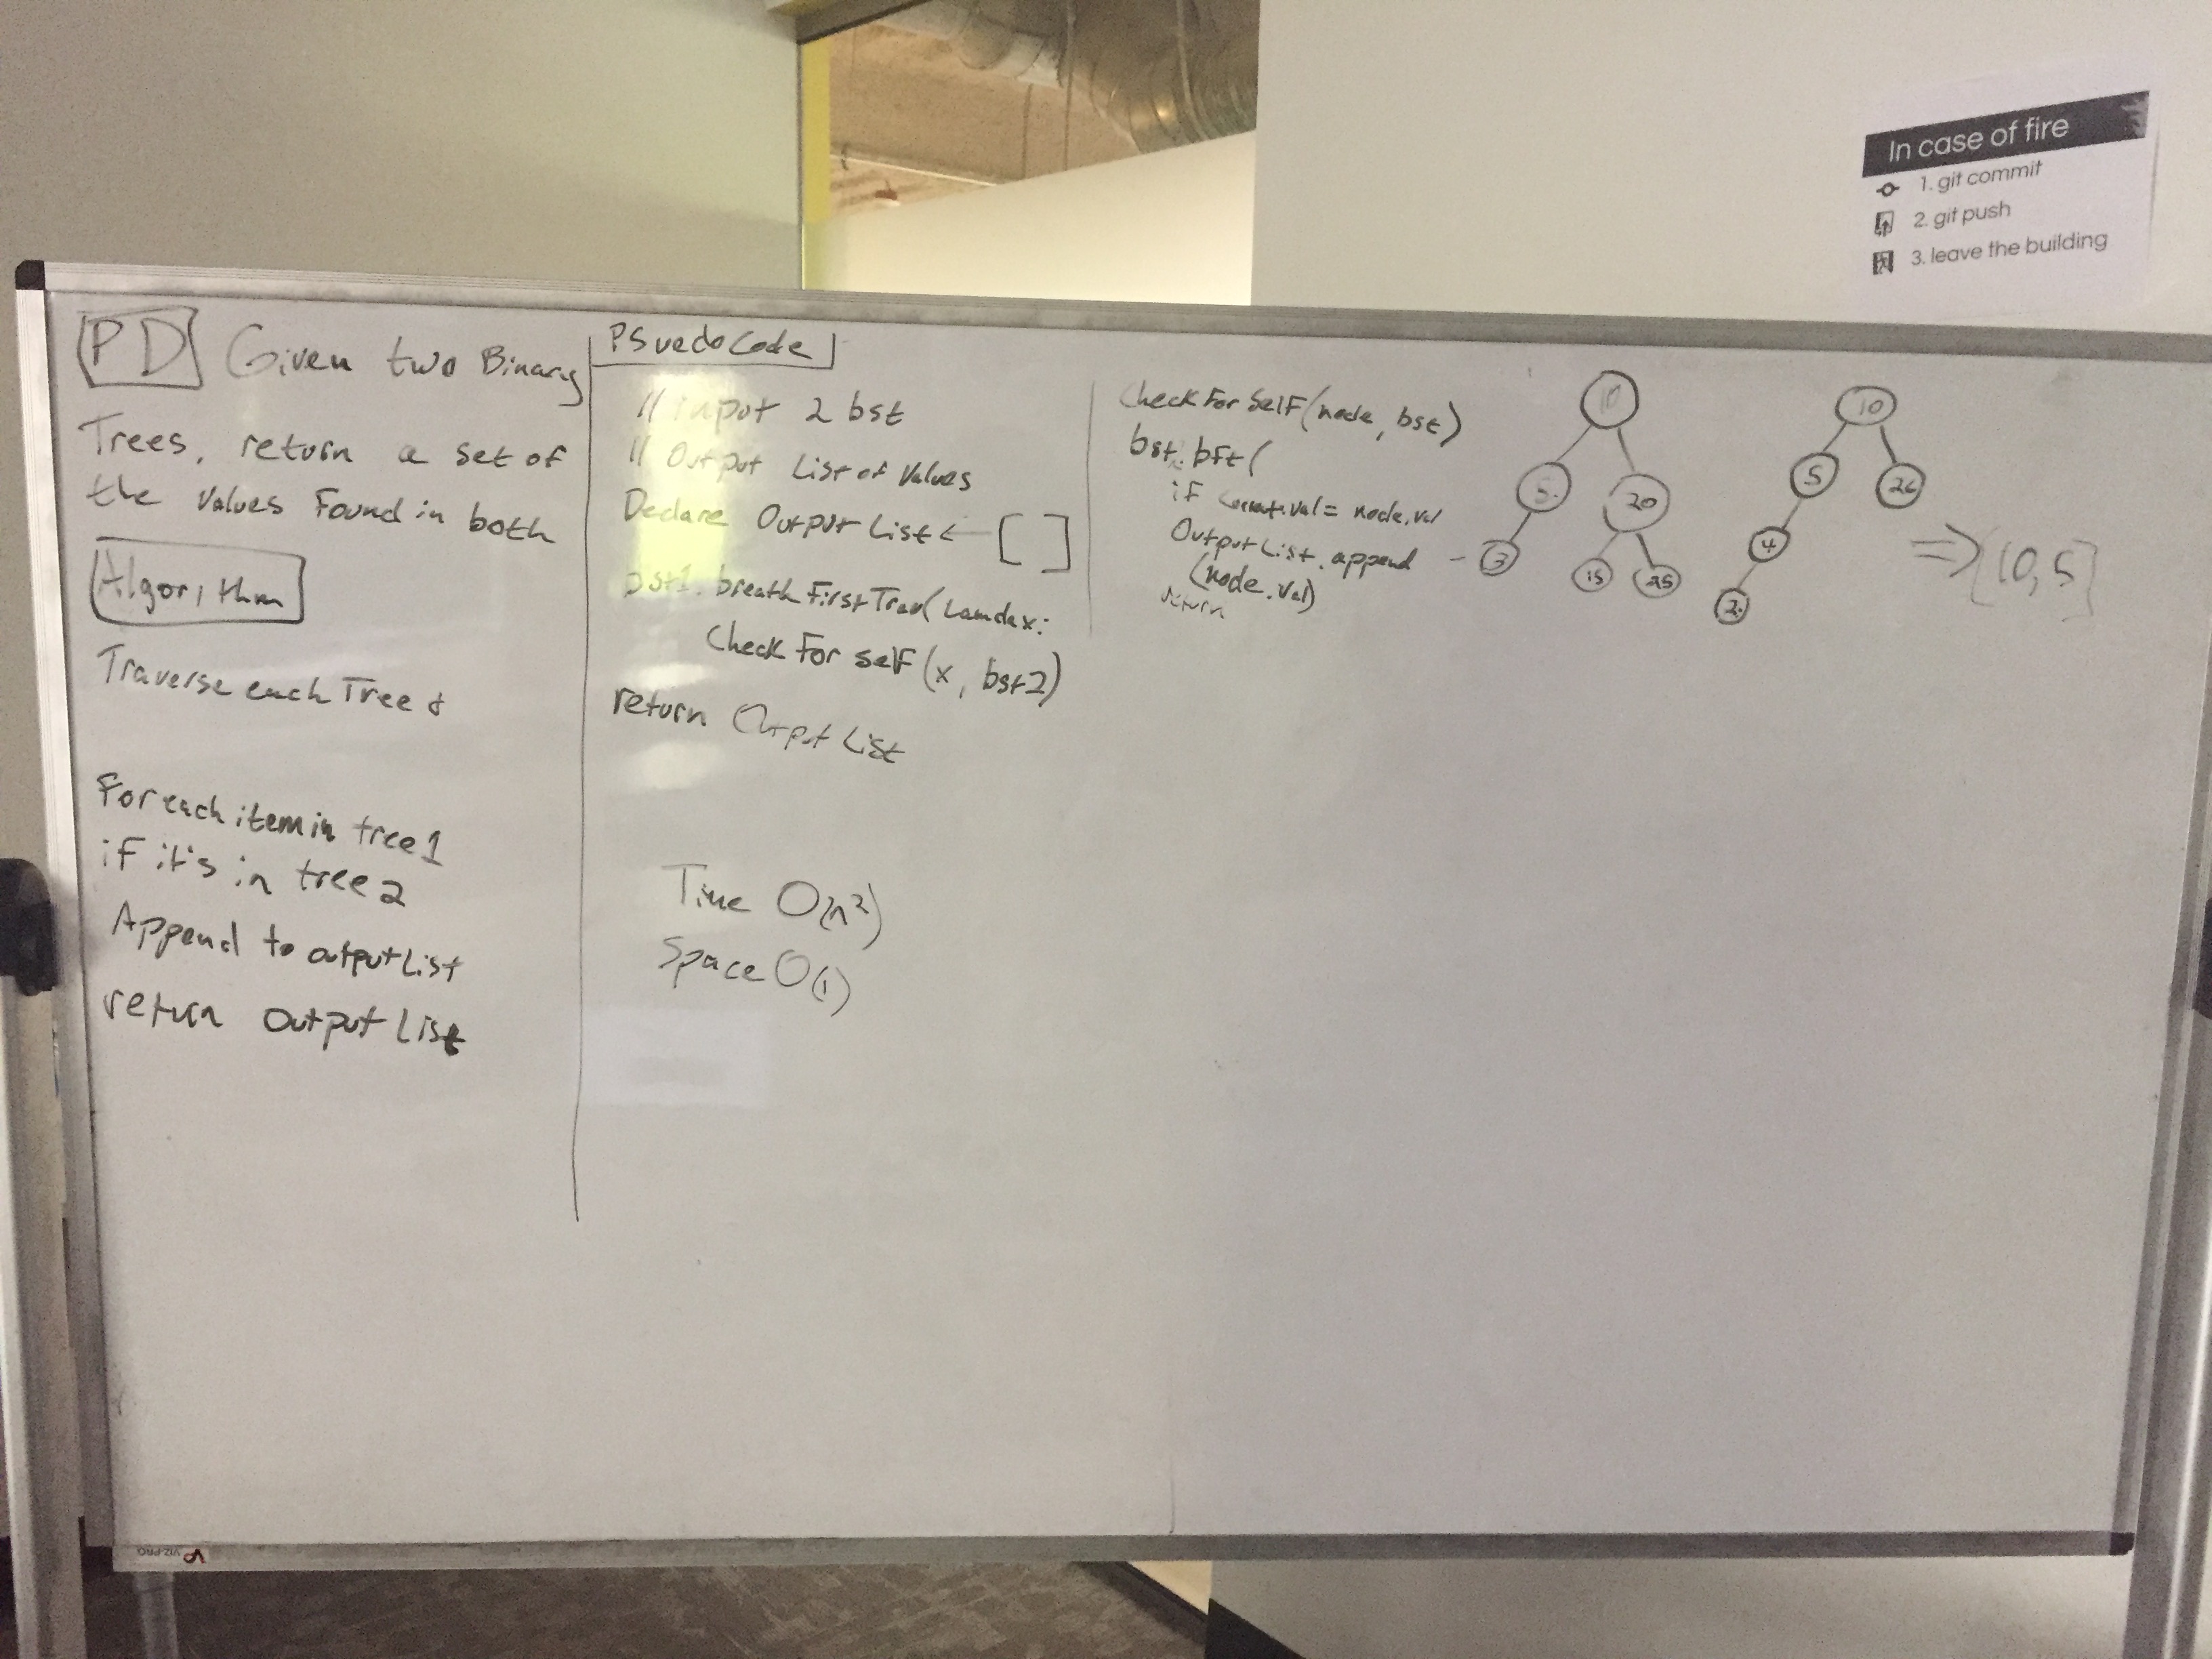 In case of fire
1. git commit
2. git push
3. leave the building
PD Given two Binary
Trees, return a set of
the values found in both
Algorithm
Traverse each Tree &
For each item in tree 1
if it's in tree 2
Append to outputList
return OutputList
PSuedoCode
// input 2 bst
// Output List of Values
Declare OutputList ← [ ]
bst1. breathFirstTrav(Lamda x:
Check For self (x, bst2)
return OutputList
Time O(n²)
Space O(1)
Check For Self (node, bst)
bst.bft(
if current.val = node.val
OutputList.append
(node.val)
return
10
5
20
3
15
25
10
5
26
4
2
=> [10, 5]
VIZ-PRO